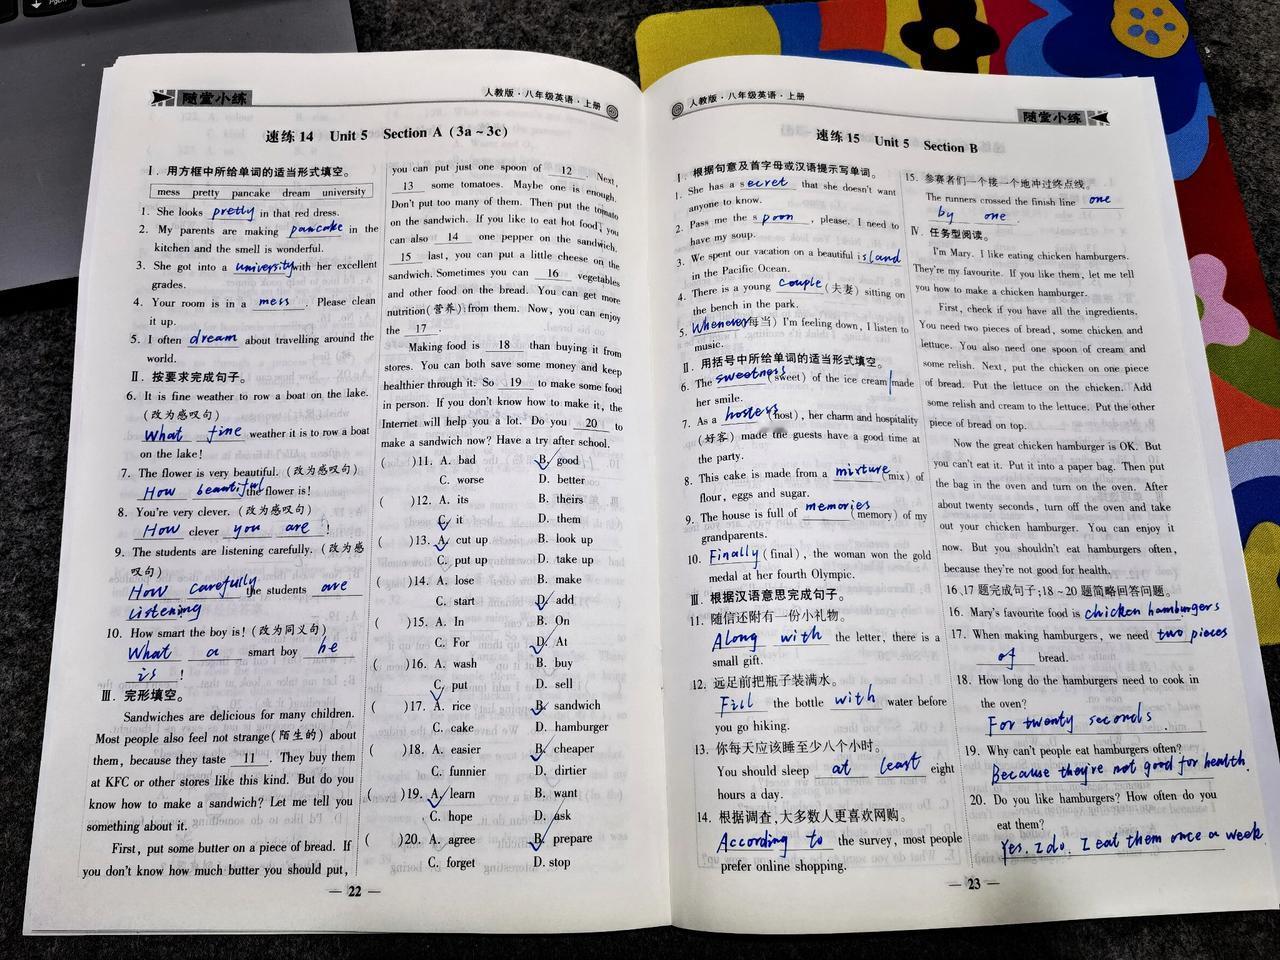 随堂小练
人教版·八年级英语·上册
速练 14 Unit 5 Section A (3a ~ 3c)
Ⅰ. 用方框中所给单词的适当形式填空。
mess pretty pancake dream university
1. She looks pretty in that red dress.
2. My parents are making pancake in the
kitchen and the smell is wonderful.
3. She got into a university with her excellent
grades.
4. Your room is in a mess . Please clean
it up.
5. I often dream about travelling around the
world.
Ⅱ. 按要求完成句子。
6. It is fine weather to row a boat on the lake.
(改为感叹句)
What fine weather it is to row a boat
on the lake!
7. The flower is very beautiful. (改为感叹句)
How beautiful the flower is!
8. You're very clever. (改为感叹句)
How clever you are !
9. The students are listening carefully. (改为感
叹句)
How carefully the students are
listening
10. How smart the boy is! (改为同义句)
What a smart boy he
is !
Ⅲ. 完形填空。
Sandwiches are delicious for many children.
Most people also feel not strange(陌生的) about
them, because they taste 11 . They buy them
at KFC or other stores like this kind. But do you
know how to make a sandwich? Let me tell you
something about it.
First, put some butter on a piece of bread. If
you don't know how much butter you should put,
you can put just one spoon of 12 . Next,
13 some tomatoes. Maybe one is enough.
Don't put too many of them. Then put the tomato
on the sandwich. If you like to eat hot food, you
can also 14 one pepper on the sandwich.
15 last, you can put a little cheese on the
sandwich. Sometimes you can 16 vegetables
and other food on the bread. You can get more
nutrition(营养) from them. Now, you can enjoy
the 17 .
Making food is 18 than buying it from
stores. You can both save some money and keep
healthier through it. So 19 to make some food
in person. If you don't know how to make it, the
Internet will help you a lot. Do you 20 to
make a sandwich now? Have a try after school.
( )11. A. bad B. good
C. worse D. better
( )12. A. its B. theirs
C. it D. them
( )13. A. cut up B. look up
C. put up D. take up
( )14. A. lose B. make
C. start D. add
( )15. A. In B. On
C. For D. At
( )16. A. wash B. buy
C. put D. sell
( )17. A. rice B. sandwich
C. cake D. hamburger
( )18. A. easier B. cheaper
C. funnier D. dirtier
( )19. A. learn B. want
C. hope D. ask
( )20. A. agree B. prepare
C. forget D. stop
— 22 —
人教版·八年级英语·上册
随堂小练
速练 15 Unit 5 Section B
Ⅰ. 根据句意及首字母或汉语提示写单词。
1. She has a secret that she doesn't want
anyone to know.
2. Pass me the spoon , please. I need to
have my soup.
3. We spent our vacation on a beautiful island
in the Pacific Ocean.
4. There is a young couple (夫妻) sitting on
the bench in the park.
5. Whenever (每当) I'm feeling down, I listen to
music.
Ⅱ. 用括号中所给单词的适当形式填空。
6. The sweetness (sweet) of the ice cream made
her smile.
7. As a hostess (host), her charm and hospitality
(好客) made the guests have a good time at
the party.
8. This cake is made from a mixture (mix) of
flour, eggs and sugar.
9. The house is full of memories (memory) of my
grandparents.
10. Finally (final), the woman won the gold
medal at her fourth Olympic.
Ⅲ. 根据汉语意思完成句子。
11. 随信还附有一份小礼物。
Along with the letter, there is a
small gift.
12. 远足前把瓶子装满水。
Fill the bottle with water before
you go hiking.
13. 你每天应该睡至少八个小时。
You should sleep at least eight
hours a day.
14. 根据调查,大多数人更喜欢网购。
According to the survey, most people
prefer online shopping.
15. 参赛者们一个接一个地冲过终点线。
The runners crossed the finish line one
by one .
Ⅳ. 任务型阅读。
I'm Mary. I like eating chicken hamburgers.
They're my favourite. If you like them, let me tell
you how to make a chicken hamburger.
First, check if you have all the ingredients.
You need two pieces of bread, some chicken and
lettuce. You also need one spoon of cream and
some relish. Next, put the chicken on one piece
of bread. Put the lettuce on the chicken. Add
some relish and cream to the lettuce. Put the other
piece of bread on top.
Now the great chicken hamburger is OK. But
you can't eat it. Put it into a paper bag. Then put
the bag in the oven and turn on the oven. After
about twenty seconds, turn off the oven and take
out your chicken hamburger. You can enjoy it
now. But you shouldn't eat hamburgers often,
because they're not good for health.
16、17 题完成句子;18~20 题简略回答问题。
16. Mary's favourite food is chicken hamburgers
17. When making hamburgers, we need two pieces
of bread.
18. How long do the hamburgers need to cook in
the oven?
For twenty seconds .
19. Why can't people eat hamburgers often?
Because they're not good for health.
20. Do you like hamburgers? How often do you
eat them?
Yes, I do. I eat them once a week
— 23 —